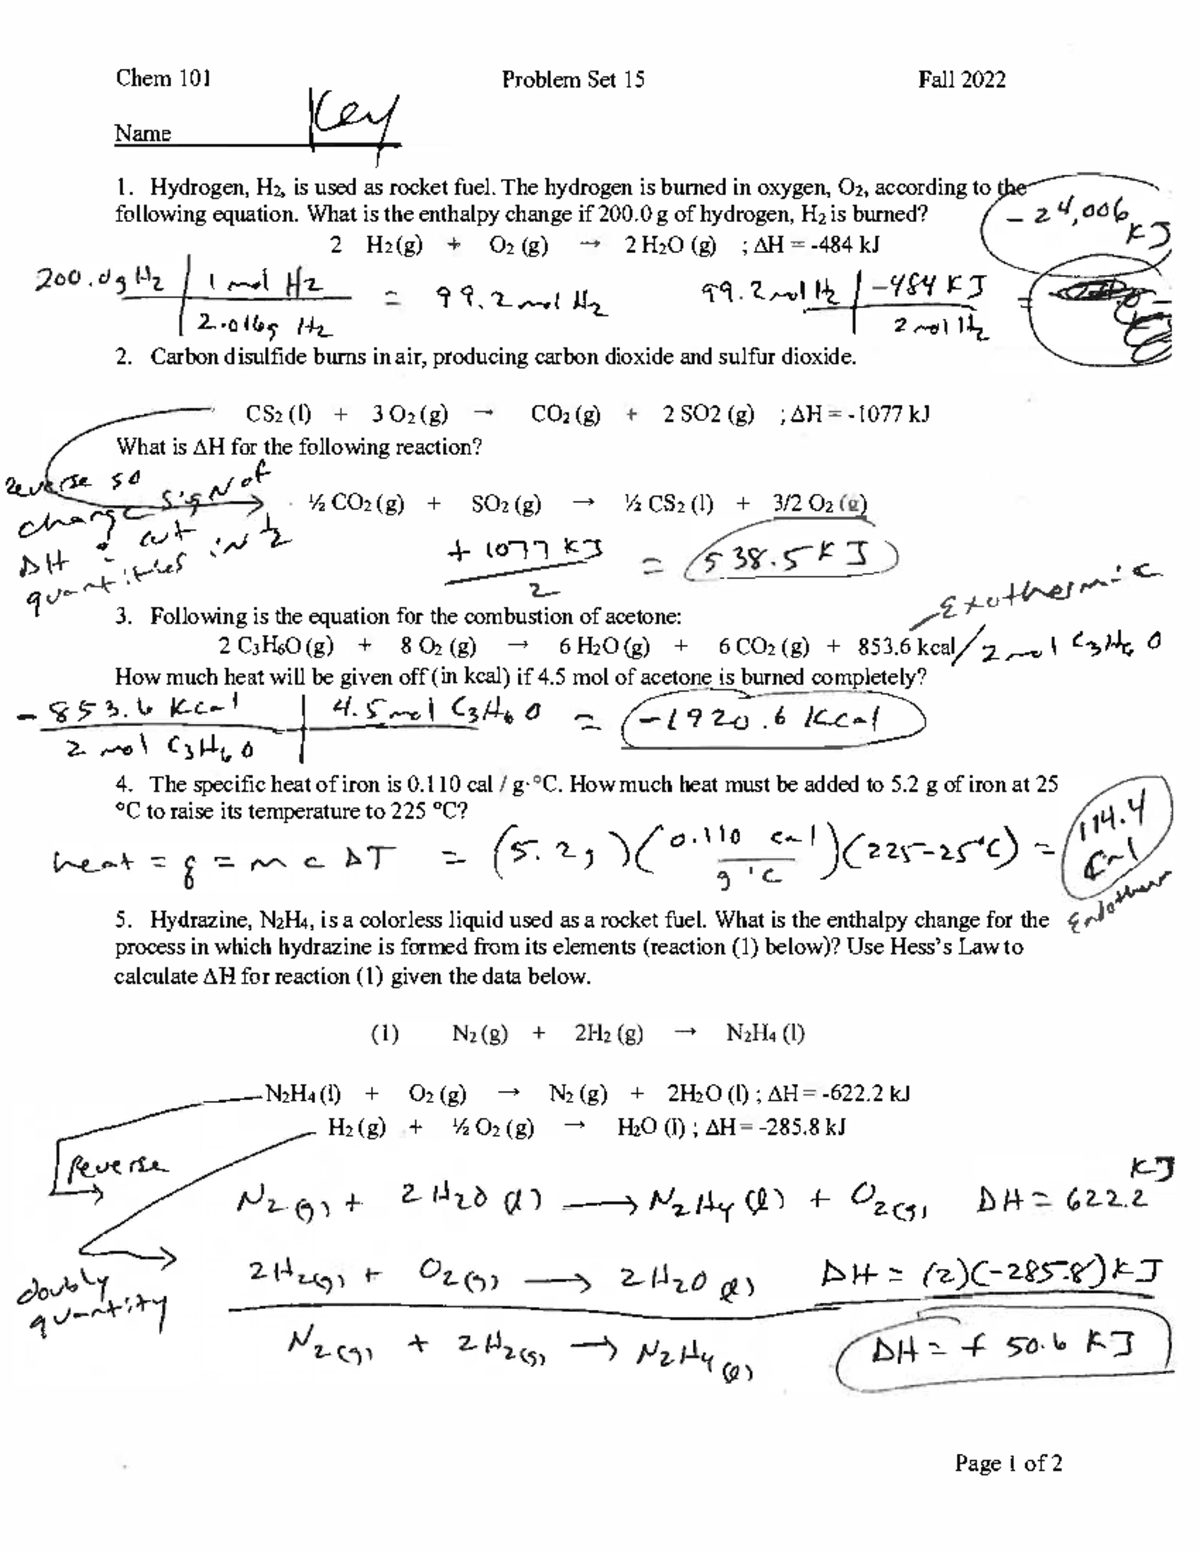 Chem 101 Problem Set 15 Fall 2022
Name Key
1. Hydrogen, H2, is used as rocket fuel. The hydrogen is burned in oxygen, O2, according to the
following equation. What is the enthalpy change if 200.0 g of hydrogen, H2 is burned?
-24,006 KJ
2 H2(g) + O2 (g) → 2 H2O (g) ; ΔH = -484 kJ
200.0g H2 | 1 mol H2 = 99.2 mol H2 99.2 mol H2 | -484 KJ =
2.016g H2 2 mol H2
2. Carbon disulfide burns in air, producing carbon dioxide and sulfur dioxide.
CS2 (l) + 3 O2 (g) → CO2 (g) + 2 SO2 (g) ; ΔH = -1077 kJ
What is ΔH for the following reaction?
reverse so
change sign of
ΔH & cut
quantities in 1/2
½ CO2 (g) + SO2 (g) → ½ CS2 (l) + 3/2 O2 (g)
+ 1077 KJ = 538.5 KJ
2
3. Following is the equation for the combustion of acetone:
Exothermic
2 C3H6O (g) + 8 O2 (g) → 6 H2O (g) + 6 CO2 (g) + 853.6 kcal / 2 mol C3H6O
How much heat will be given off (in kcal) if 4.5 mol of acetone is burned completely?
-853.6 Kcal | 4.5 mol C3H6O = -1920.6 Kcal
2 mol C3H6O
4. The specific heat of iron is 0.110 cal / g·°C. How much heat must be added to 5.2 g of iron at 25
°C to raise its temperature to 225 °C?
heat = q = m c ΔT = (5.2g)(0.110 cal / g·°C)(225-25°C) = 114.4 cal
Endotherm
5. Hydrazine, N2H4, is a colorless liquid used as a rocket fuel. What is the enthalpy change for the
process in which hydrazine is formed from its elements (reaction (1) below)? Use Hess's Law to
calculate ΔH for reaction (1) given the data below.
(1) N2 (g) + 2H2 (g) → N2H4 (l)
N2H4 (l) + O2 (g) → N2 (g) + 2H2O (l) ; ΔH = -622.2 kJ
H2 (g) + ½ O2 (g) → H2O (l) ; ΔH = -285.8 kJ
Reverse
N2(g) + 2 H2O (l) → N2H4 (l) + O2(g) ΔH = 622.2 KJ
doubly
quantity
2H2(g) + O2(g) → 2H2O (l) ΔH = (2)(-285.8) KJ
N2(g) + 2H2(g) → N2H4 (l) ΔH = + 50.6 KJ
Page 1 of 2